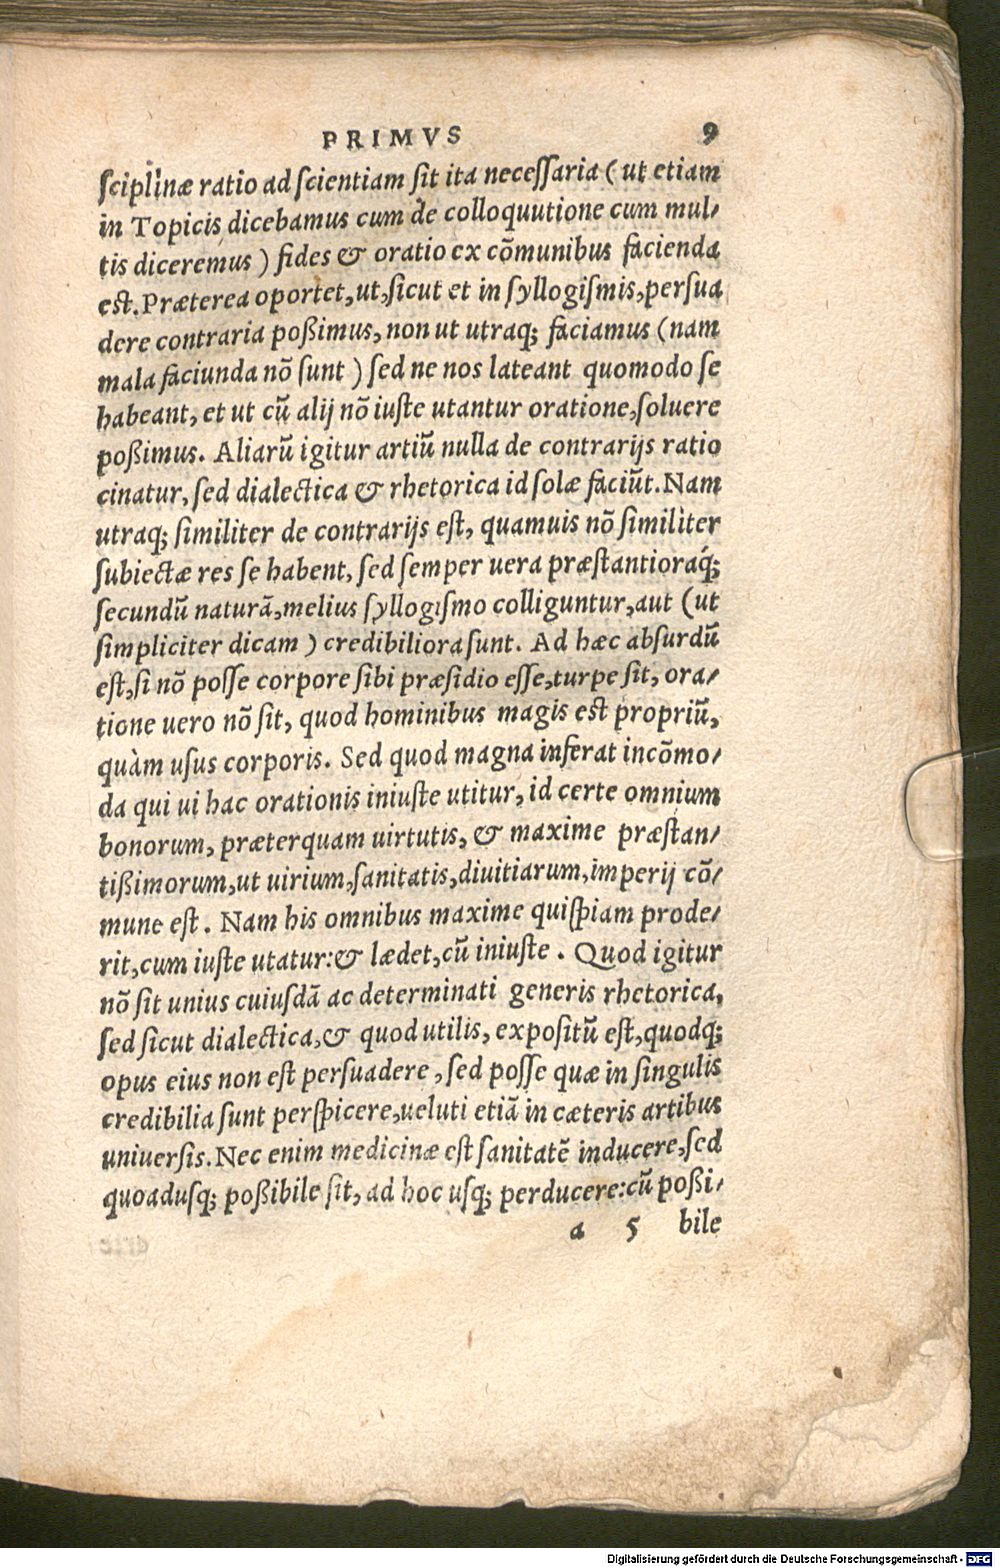 PRIMVS 9
ſciplinæ ratio ad ſcientiam ſit ita neceſſaria ( ut etiam
in Topicis dicebamus cum de colloquutione cum mul⸗
tis diceremus ) fides & oratio ex cõmunibus facienda
est. Præterea oportet, ut, ſicut et in ſyllogiſmis, perſua
dere contraria poßimus, non ut utraq; faciamus (nam
mala faciunda nõ ſunt ) ſed ne nos lateant quomodo ſe
habeant, et ut cũ alij nõ iuſte utantur oratione, ſoluere
poßimus. Aliarũ igitur artiũ nulla de contrarijs ratio
cinatur, ſed dialectica & rhetorica id ſolæ faciũt. Nam
utraq; ſimiliter de contrarijs eſt, quamuis nõ ſimiliter
ſubiectæ res ſe habent, ſed ſemper uera præſtantioraq́;
ſecundũ naturã, melius ſyllogiſmo colliguntur, aut (ut
ſimpliciter dicam ) credibiliora ſunt. Ad hæc abſurdũ
eſt, ſi nõ poſſe corpore ſibi præſidio eſſe, turpe ſit, ora⸗
tione uero nõ ſit, quod hominibus magis eſt propriũ,
quàm uſus corporis. Sed quod magna inferat incõmo⸗
da qui ui hac orationis iniuſte utitur, id certe omnium
bonorum, præterquam uirtutis, & maxime præſtan⸗
tißimorum, ut uirium, ſanitatis, diuitiarum, imperij cõ⸗
mune eſt. Nam his omnibus maxime quiſpiam prode⸗
rit, cum iuſte utatur: & lædet, cũ iniuſte. Quod igitur
nõ ſit unius cuiuſdã ac determinati generis rhetorica,
ſed ſicut dialectica, & quod utilis, expoſitũ eſt, quodq;
opus eius non eſt perſuadere, ſed poſſe quæ in ſingulis
credibilia ſunt perſpicere, ueluti etiã in cæteris artibus
uniuerſis. Nec enim medicinæ eſt ſanitatẽ inducere, ſed
quoadusq; poßibile ſit, ad hoc uſq; perducere: cũ poßi⸗
a 5 bile
Digitalisierung gefördert durch die Deutsche Forschungsgemeinschaft - DFG